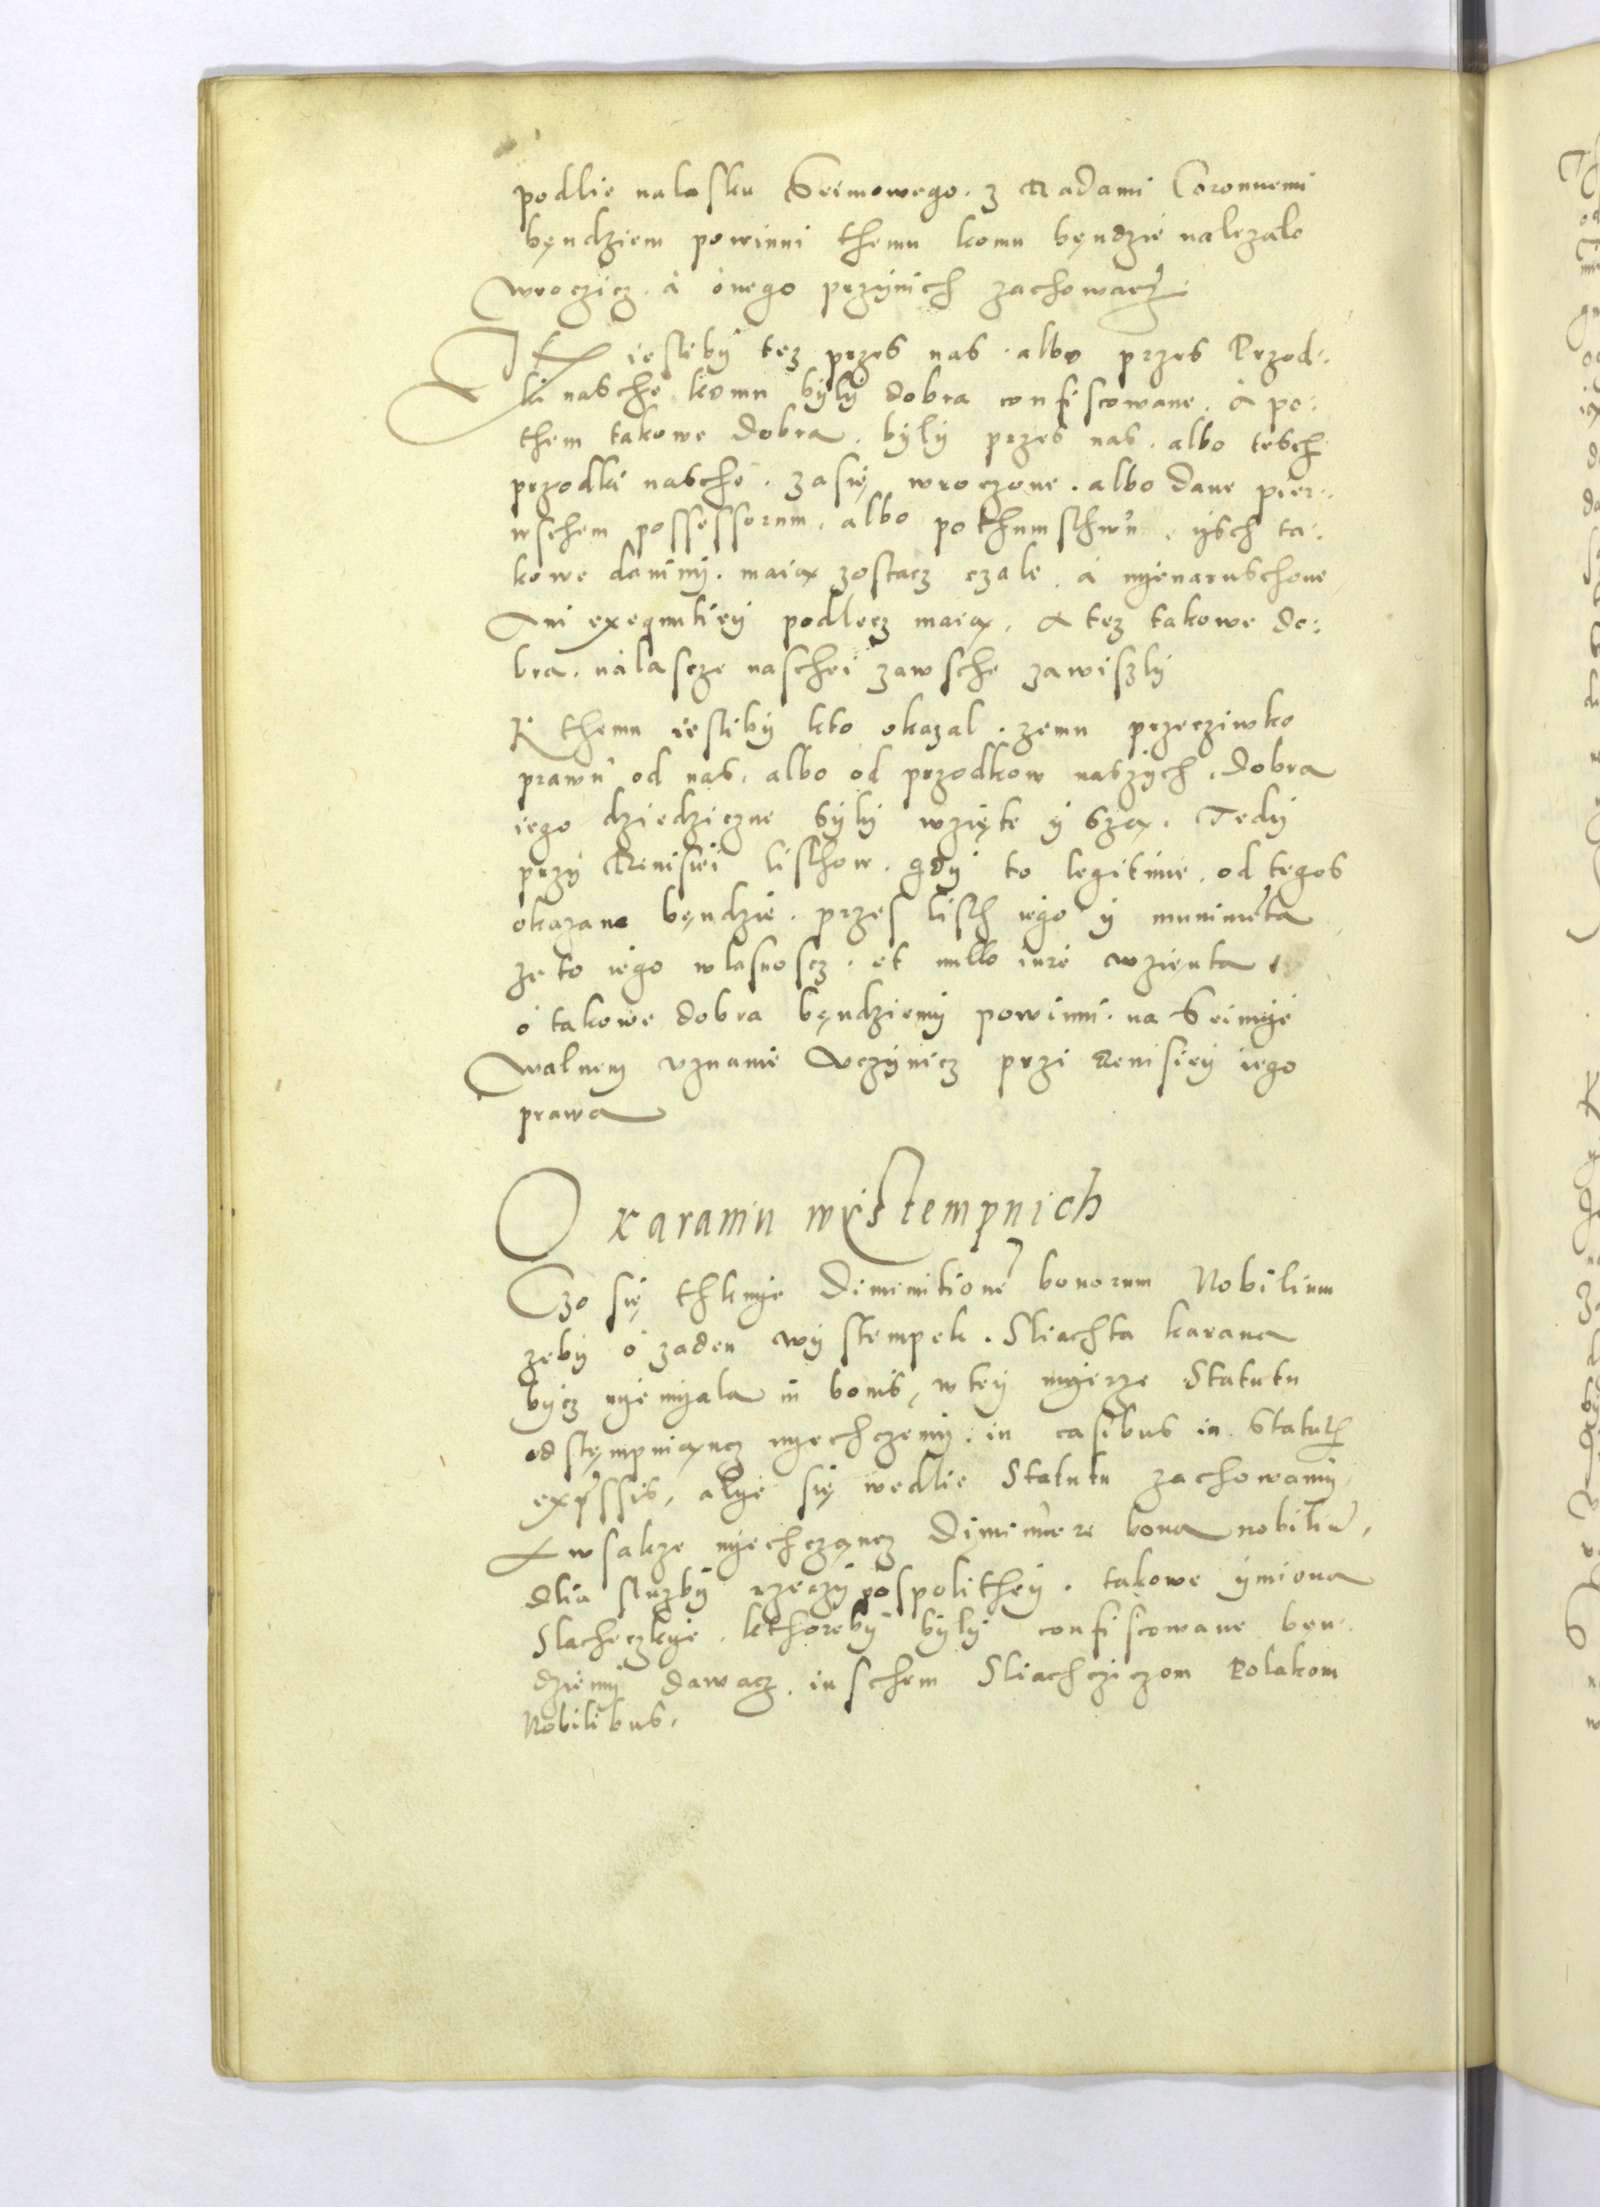 podlie nalasku Seimowego. z Radami Coronnemi
bęndziem powinni themu komu bęndzie nalezalo
wroczicz. à onego przÿnich zachowacz.
A iestlibÿ tez przes nas. albo przes Przod:
ki nasche komu bÿlÿ dobra confiscowane. A po:
them takowe dobra. bÿlÿ przes nas. albo tesch
przodki nasche. zasię wroczone. albo dane pier:
wschem possessorum. albo pothumsthwu. ÿsch ta:
kowe daninÿ. maią zostacz czale. á nÿenaruschone
Ani exequutieÿ podlecz maią. A tez takowe do:
bra. nalascze naschei zawsche zawiszlÿ
K themu iestlibÿ kto okazal. zemu przecziwko
prawu od nas. albo od przodkow naszÿch. dobra
iego dziedziczne bÿlÿ wzięte ÿ szą. Tedÿ
przÿ Reuisiei listhow. gdÿ to legitime. od tegos
okazano bęndzie. przes listh iego ÿ munimeta
ze to iego wlasnoscz. et nullo iure wzięnta
o takowe dobra bęndziemÿ powinni. na Seimÿe
walnem vznanie vczÿnicz przi Reuisieÿ iego
prawa
O karaniu wÿstempnich
Czo się thknÿe Diminitione bonorum Nobilium
zebÿ ó zaden wÿstempek. Sliachta karana
bÿcz nÿe mÿala in bonis, w teÿ mÿerze Statutu
odstęmpniąncz nÿechczemÿ. in casibus in Statut
exp̃ssis, alÿe się wedlie Statutu zachowamÿ
A wsakze nÿechcząncz Diminuere bona nobiliũ,
dlia sluzbÿ rzeczÿ pospolitheÿ. takowe ÿmiona
Slacheczkÿe. kthorebÿ bÿlÿ confiscowane ben:
dziemÿ dawacz. inschem Sliachcziczom Polakom
Nobilibus.